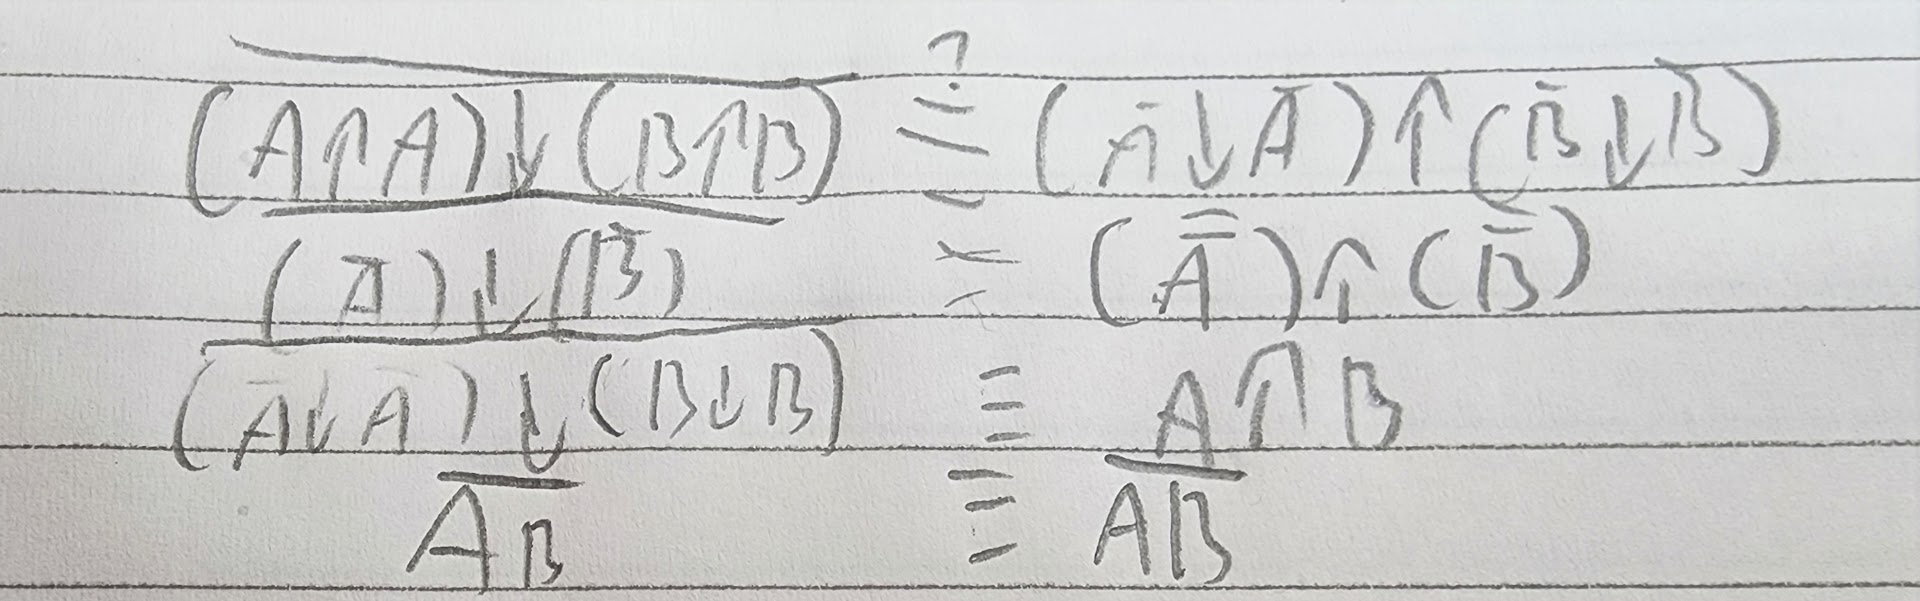 $\overline{(A \uparrow A) \downarrow (B \uparrow B)} \overset{?}{\equiv} (\bar{A} \downarrow \bar{A}) \uparrow (\bar{B} \downarrow \bar{B})$
$\overline{(\bar{A}) \downarrow (\bar{B})} \equiv (\bar{\bar{A}}) \uparrow (\bar{\bar{B}})$
$\overline{(A \downarrow A) \downarrow (B \downarrow B)} \equiv A \uparrow B$
$\overline{AB} \equiv \overline{AB}$